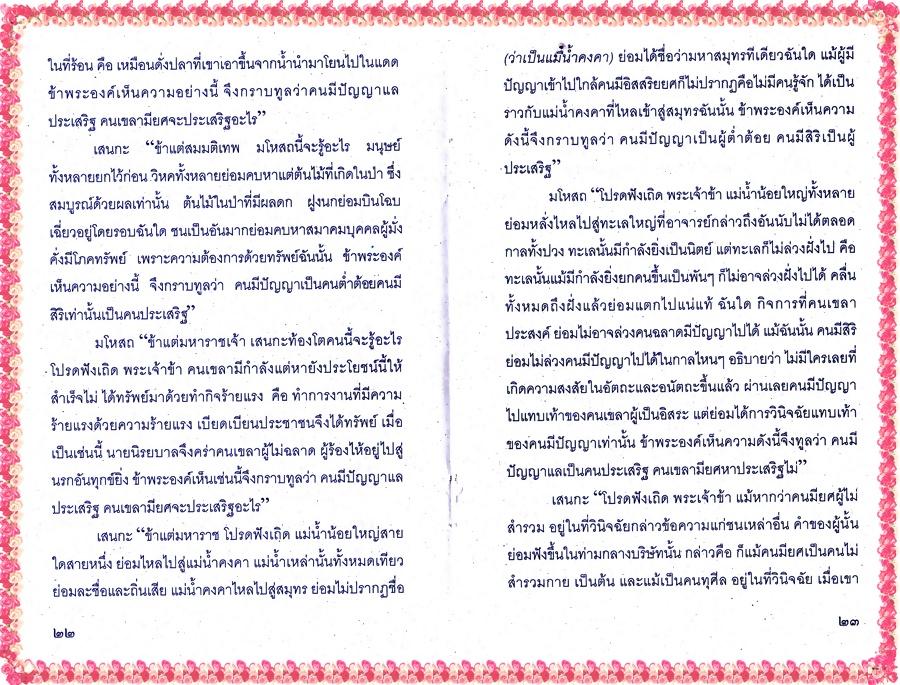 ในที่ร้อน คือ เหมือนดั่งปลาที่เขาเอาขึ้นจากน้ำนำมาโยนไปในแดด
ข้าพระองค์เห็นความอย่างนี้ จึงกราบทูลว่าคนมีปัญญาแล
ประเสริฐ คนเขลามียศจะประเสริฐอะไร”
เสนกะ “ข้าแต่สมมติเทพ มโหสถนี้จะรู้อะไร มนุษย์
ทั้งหลายยกไว้ก่อน วิหคทั้งหลายย่อมคบหาแต่ต้นไม้ที่เกิดในป่า ซึ่ง
สมบูรณ์ด้วยผลเท่านั้น ต้นไม้ในป่าที่มีผลดก ฝูงนกย่อมบินโฉบ
เฉี่ยวอยู่โดยรอบฉันใด ชนเป็นอันมากย่อมคบหาสมาคมบุคคลผู้มั่ง
คั่งมีโภคทรัพย์ เพราะความต้องการด้วยทรัพย์ฉันนั้น ข้าพระองค์
เห็นความอย่างนี้ จึงกราบทูลว่า คนมีปัญญาเป็นคนต่ำต้อยคนมี
สิริเท่านั้นเป็นคนประเสริฐ”
มโหสถ “ข้าแต่มหาราชเจ้า เสนกะท้องโตคนนี้จะรู้อะไร
โปรดฟังเถิด พระเจ้าข้า คนเขลามีกำลังแต่หายังประโยชน์นี้ให้
สำเร็จไม่ ได้ทรัพย์มาด้วยทำกิจร้ายแรง คือ ทำการงานที่มีความ
ร้ายแรงด้วยความร้ายแรง เบียดเบียนประชาชนจึงได้ทรัพย์ เมื่อ
เป็นเช่นนี้ นายนิรยบาลจึงคร่าคนเขลาผู้ไม่ฉลาด ผู้ร้องไห้อยู่ไปสู่
นรกอันทุกข์ยิ่ง ข้าพระองค์เห็นเช่นนี้จึงกราบทูลว่า คนมีปัญญาแล
ประเสริฐ คนเขลามียศจะประเสริฐอะไร”
เสนกะ “ข้าแต่มหาราช โปรดฟังเถิด แม่น้ำน้อยใหญ่สาย
ใดสายหนึ่ง ย่อมไหลไปสู่แม่น้ำคงคา แม่น้ำเหล่านั้นทั้งหมดเทียว
ย่อมละชื่อและถิ่นเสีย แม่น้ำคงคาไหลไปสู่สมุทร ย่อมไม่ปรากฏชื่อ
๒๒
(ว่าเป็นแม่น้ำคงคา) ย่อมได้ชื่อว่ามหาสมุทรทีเดียวฉันใด แม้ผู้มี
ปัญญาเข้าไปใกล้คนมีอิสสริยยศก็ไม่ปรากฏคือไม่มีคนรู้จัก ได้เป็น
ราวกับแม่น้ำคงคาที่ไหลเข้าสู่สมุทรฉันนั้น ข้าพระองค์เห็นความ
ดังนี้จึงกราบทูลว่า คนมีปัญญาเป็นผู้ต่ำต้อย คนมีสิริเป็นผู้
ประเสริฐ”
มโหสถ “โปรดฟังเถิด พระเจ้าข้า แม่น้ำน้อยใหญ่ทั้งหลาย
ย่อมหลั่งไหลไปสู่ทะเลใหญ่ที่อาจารย์กล่าวถึงอันนับไม่ได้ตลอด
กาลทั้งปวง ทะเลนั้นมีกำลังยิ่งเป็นนิตย์ แต่ทะเลก็ไม่ล่วงฝั่งไป คือ
ทะเลนั้นแม้มีกำลังยิ่งยกคนขึ้นเป็นพันๆ ก็ไม่อาจล่วงฝั่งไปได้ คลื่น
ทั้งหมดถึงฝั่งแล้วย่อมแตกไปแน่แท้ ฉันใด กิจการที่คนเขลา
ประสงค์ ย่อมไม่อาจล่วงคนฉลาดมีปัญญาไปได้ แม้ฉันนั้น คนมีสิริ
ย่อมไม่ล่วงคนมีปัญญาไปได้ในกาลไหนๆ อธิบายว่า ไม่มีใครเลยที่
เกิดความสงสัยในอัตถะและอนัตถะขึ้นแล้ว ผ่านเลยคนมีปัญญา
ไปแทบเท้าของคนเขลาผู้เป็นอิสระ แต่ย่อมได้การวินิจฉัยแทบเท้า
ของคนมีปัญญาเท่านั้น ข้าพระองค์เห็นความดังนี้จึงทูลว่า คนมี
ปัญญาแลเป็นคนประเสริฐ คนเขลามียศหาประเสริฐไม่”
เสนกะ “โปรดฟังเถิด พระเจ้าข้า แม้หากว่าคนมียศผู้ไม่
สำรวม อยู่ในที่วินิจฉัยกล่าวข้อความแก่ชนเหล่าอื่น คำของผู้นั้น
ย่อมฟังขึ้นในท่ามกลางบริษัทนั้น กล่าวคือ ก็แม้คนมียศเป็นคนไม่
สำรวมกาย เป็นต้น และแม้เป็นคนทุศีล อยู่ในที่วินิจฉัย เมื่อเขา
๒๓